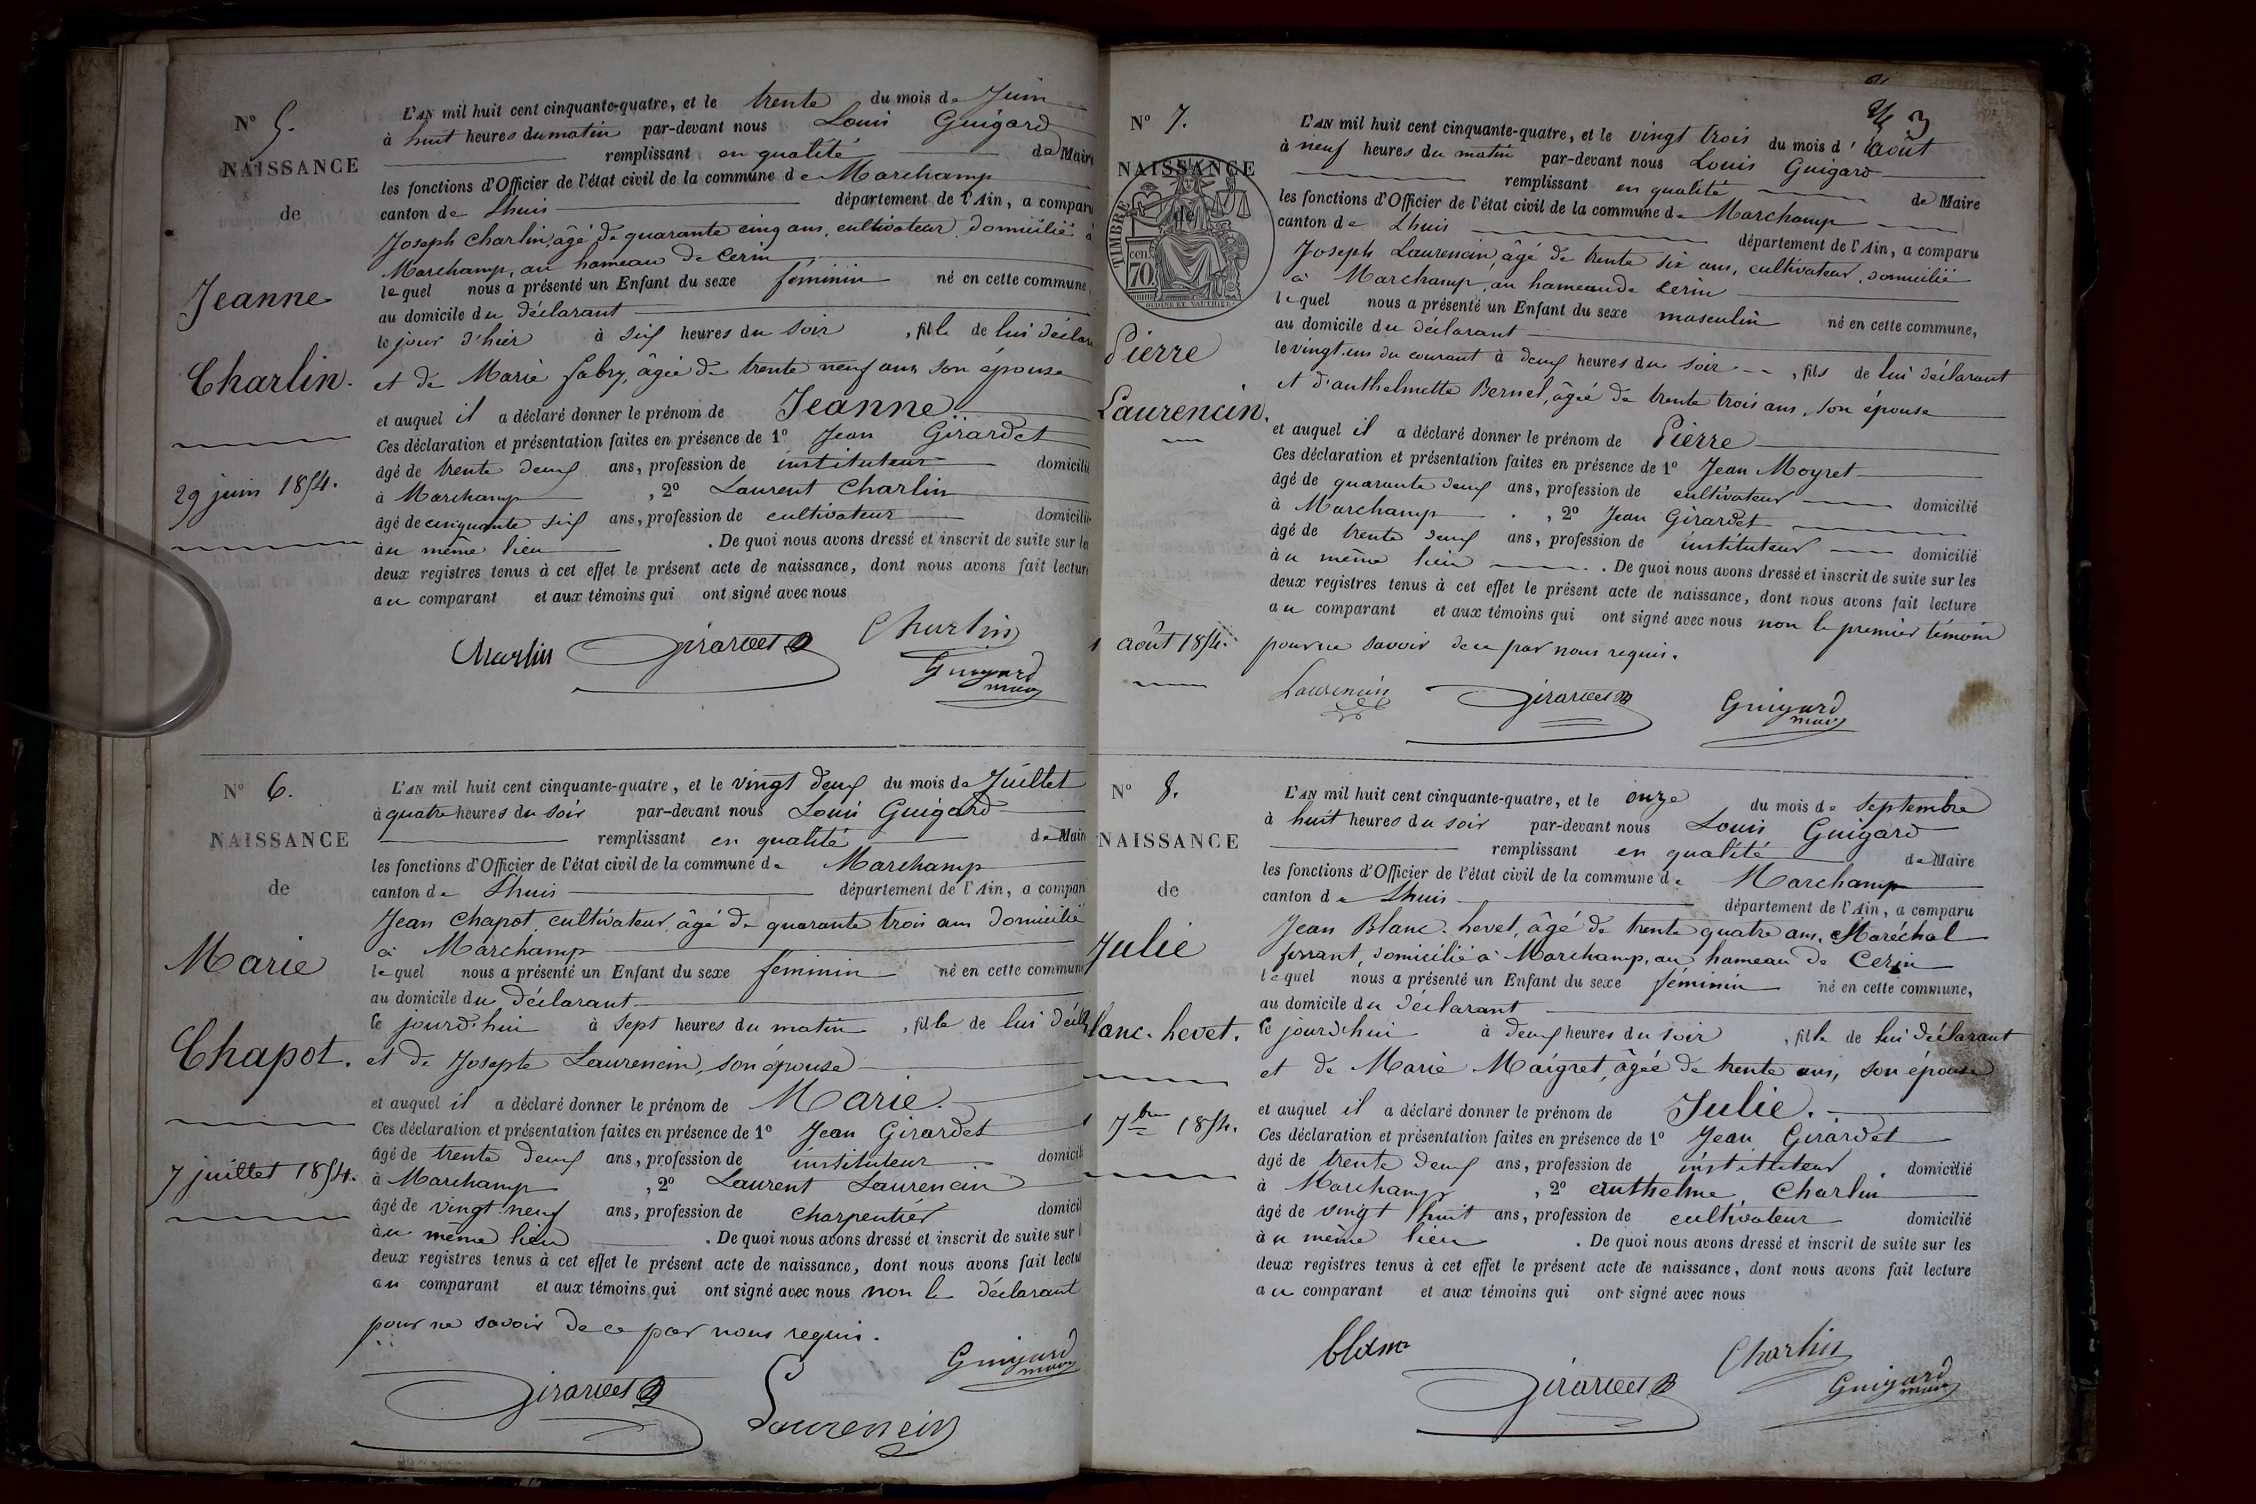 N° 5.
NAISSANCE
de
Jeanne
Charlin.
29 juin 1854.
L'AN mil huit cent cinquante-quatre, et le trente du mois de Juin
à huit heures du matin par-devant nous Louis Guigard
remplissant en qualité de Maire
les fonctions d'Officier de l'état civil de la commune de Marchamp
canton de Lhuis département de l'Ain, a comparu
Joseph Charlin, âgé de quarante cinq ans, cultivateur, domicilié à
Marchamp, au hameau de Cerin
lequel nous a présenté un Enfant du sexe féminin né en cette commune,
au domicile du déclarant
le jour d'hier à six heures du soir, fille de lui déclar
et de Marie Fabry, âgée de trente neuf ans son épouse
et auquel il a déclaré donner le prénom de Jeanne
Ces déclaration et présentation faites en présence de 1° Jean Girardet
âgé de trente deux ans, profession de instituteur domicilié
à Marchamp, 2° Laurent Charlin
âgé de cinquante six ans, profession de cultivateur domicilié
à u même lieu. De quoi nous avons dressé et inscrit de suite sur les
deux registres tenus à cet effet le présent acte de naissance, dont nous avons fait lecture
au comparant et aux témoins qui ont signé avec nous
Charlin Girardet Charlin
Guigard
maire
N° 6.
NAISSANCE
de
Marie
Chapot.
7 juillet 1854.
L'AN mil huit cent cinquante-quatre, et le vingt deux du mois de Juillet
à quatre heures du soir par-devant nous Louis Guigard
remplissant en qualité de Maire
les fonctions d'Officier de l'état civil de la commune de Marchamp
canton de Lhuis département de l'Ain, a comparu
Jean Chapot, cultivateur, âgé de quarante trois ans domicilié
à Marchamp
lequel nous a présenté un Enfant du sexe féminin né en cette commune
au domicile du déclarant
le jourd'hui à sept heures du matin, fille de lui décla
et de Josepte Laurencin, son épouse
et auquel il a déclaré donner le prénom de Marie.
Ces déclaration et présentation faites en présence de 1° Jean Girardet
âgé de trente deux ans, profession de instituteur domicili
à Marchamp, 2° Laurent Laurencin
âgé de vingt neuf ans, profession de charpentier domicil
à u même lieu. De quoi nous avons dressé et inscrit de suite sur l
deux registres tenus à cet effet le présent acte de naissance, dont nous avons fait lectu
au comparant et aux témoins qui ont signé avec nous non le déclarant
pour ne savoir de ce par nous requis.
Girardet Laurencin Guigard
maire
3
N° 7.
NAISSANCE
de
TIMBRE
70 cen
Pierre
Laurencin.
août 1854.
L'AN mil huit cent cinquante-quatre, et le vingt trois du mois d'août
à neuf heures du matin par-devant nous Louis Guigard
remplissant en qualité de Maire
les fonctions d'Officier de l'état civil de la commune de Marchamp
canton de Lhuis département de l'Ain, a comparu
Joseph Laurencin, âgé de trente six ans, cultivateur, domicilié
à Marchamp, au hameau de Cerin
lequel nous a présenté un Enfant du sexe masculin né en cette commune,
au domicile du déclarant
le vingt un du courant à deux heures du soir, fils de lui déclarant
et d'anthelmette Bernel, âgée de trente trois ans, son épouse
et auquel il a déclaré donner le prénom de Pierre
Ces déclaration et présentation faites en présence de 1° Jean Moyret
âgé de quarante deux ans, profession de cultivateur domicilié
à Marchamp, 2° Jean Girardet
âgé de trente deux ans, profession de instituteur domicilié
à u même lieu. De quoi nous avons dressé et inscrit de suite sur les
deux registres tenus à cet effet le présent acte de naissance, dont nous avons fait lecture
au comparant et aux témoins qui ont signé avec nous non le premier témoin
pour ne savoir de ce par nous requis.
Laurencin Girardet Guigard
maire
N° 8.
NAISSANCE
de
Julie
lanc-hevet.
7bre 1854.
L'AN mil huit cent cinquante-quatre, et le onze du mois de septembre
à huit heures du soir par-devant nous Louis Guigard
remplissant en qualité de Maire
les fonctions d'Officier de l'état civil de la commune de Marchamp
canton de Lhuis département de l'Ain, a comparu
Jean Blanc-hevet, âgé de trente quatre ans, Maréchal
ferrant, domicilié à Marchamp, au hameau de Cerin
lequel nous a présenté un Enfant du sexe féminin né en cette commune,
au domicile du déclarant
le jourd'hui à deux heures du soir, fille de lui déclarant
et de Marie Maigret, âgée de trente ans, son épouse
et auquel il a déclaré donner le prénom de Julie.
Ces déclaration et présentation faites en présence de 1° Jean Girardet
âgé de trente deux ans, profession de instituteur domicilié
à Marchamp, 2° anthelme Charlin
âgé de vingt huit ans, profession de cultivateur domicilié
à u même lieu. De quoi nous avons dressé et inscrit de suite sur les
deux registres tenus à cet effet le présent acte de naissance, dont nous avons fait lecture
au comparant et aux témoins qui ont signé avec nous
blanc Girardet Charlin
Guigard
maire